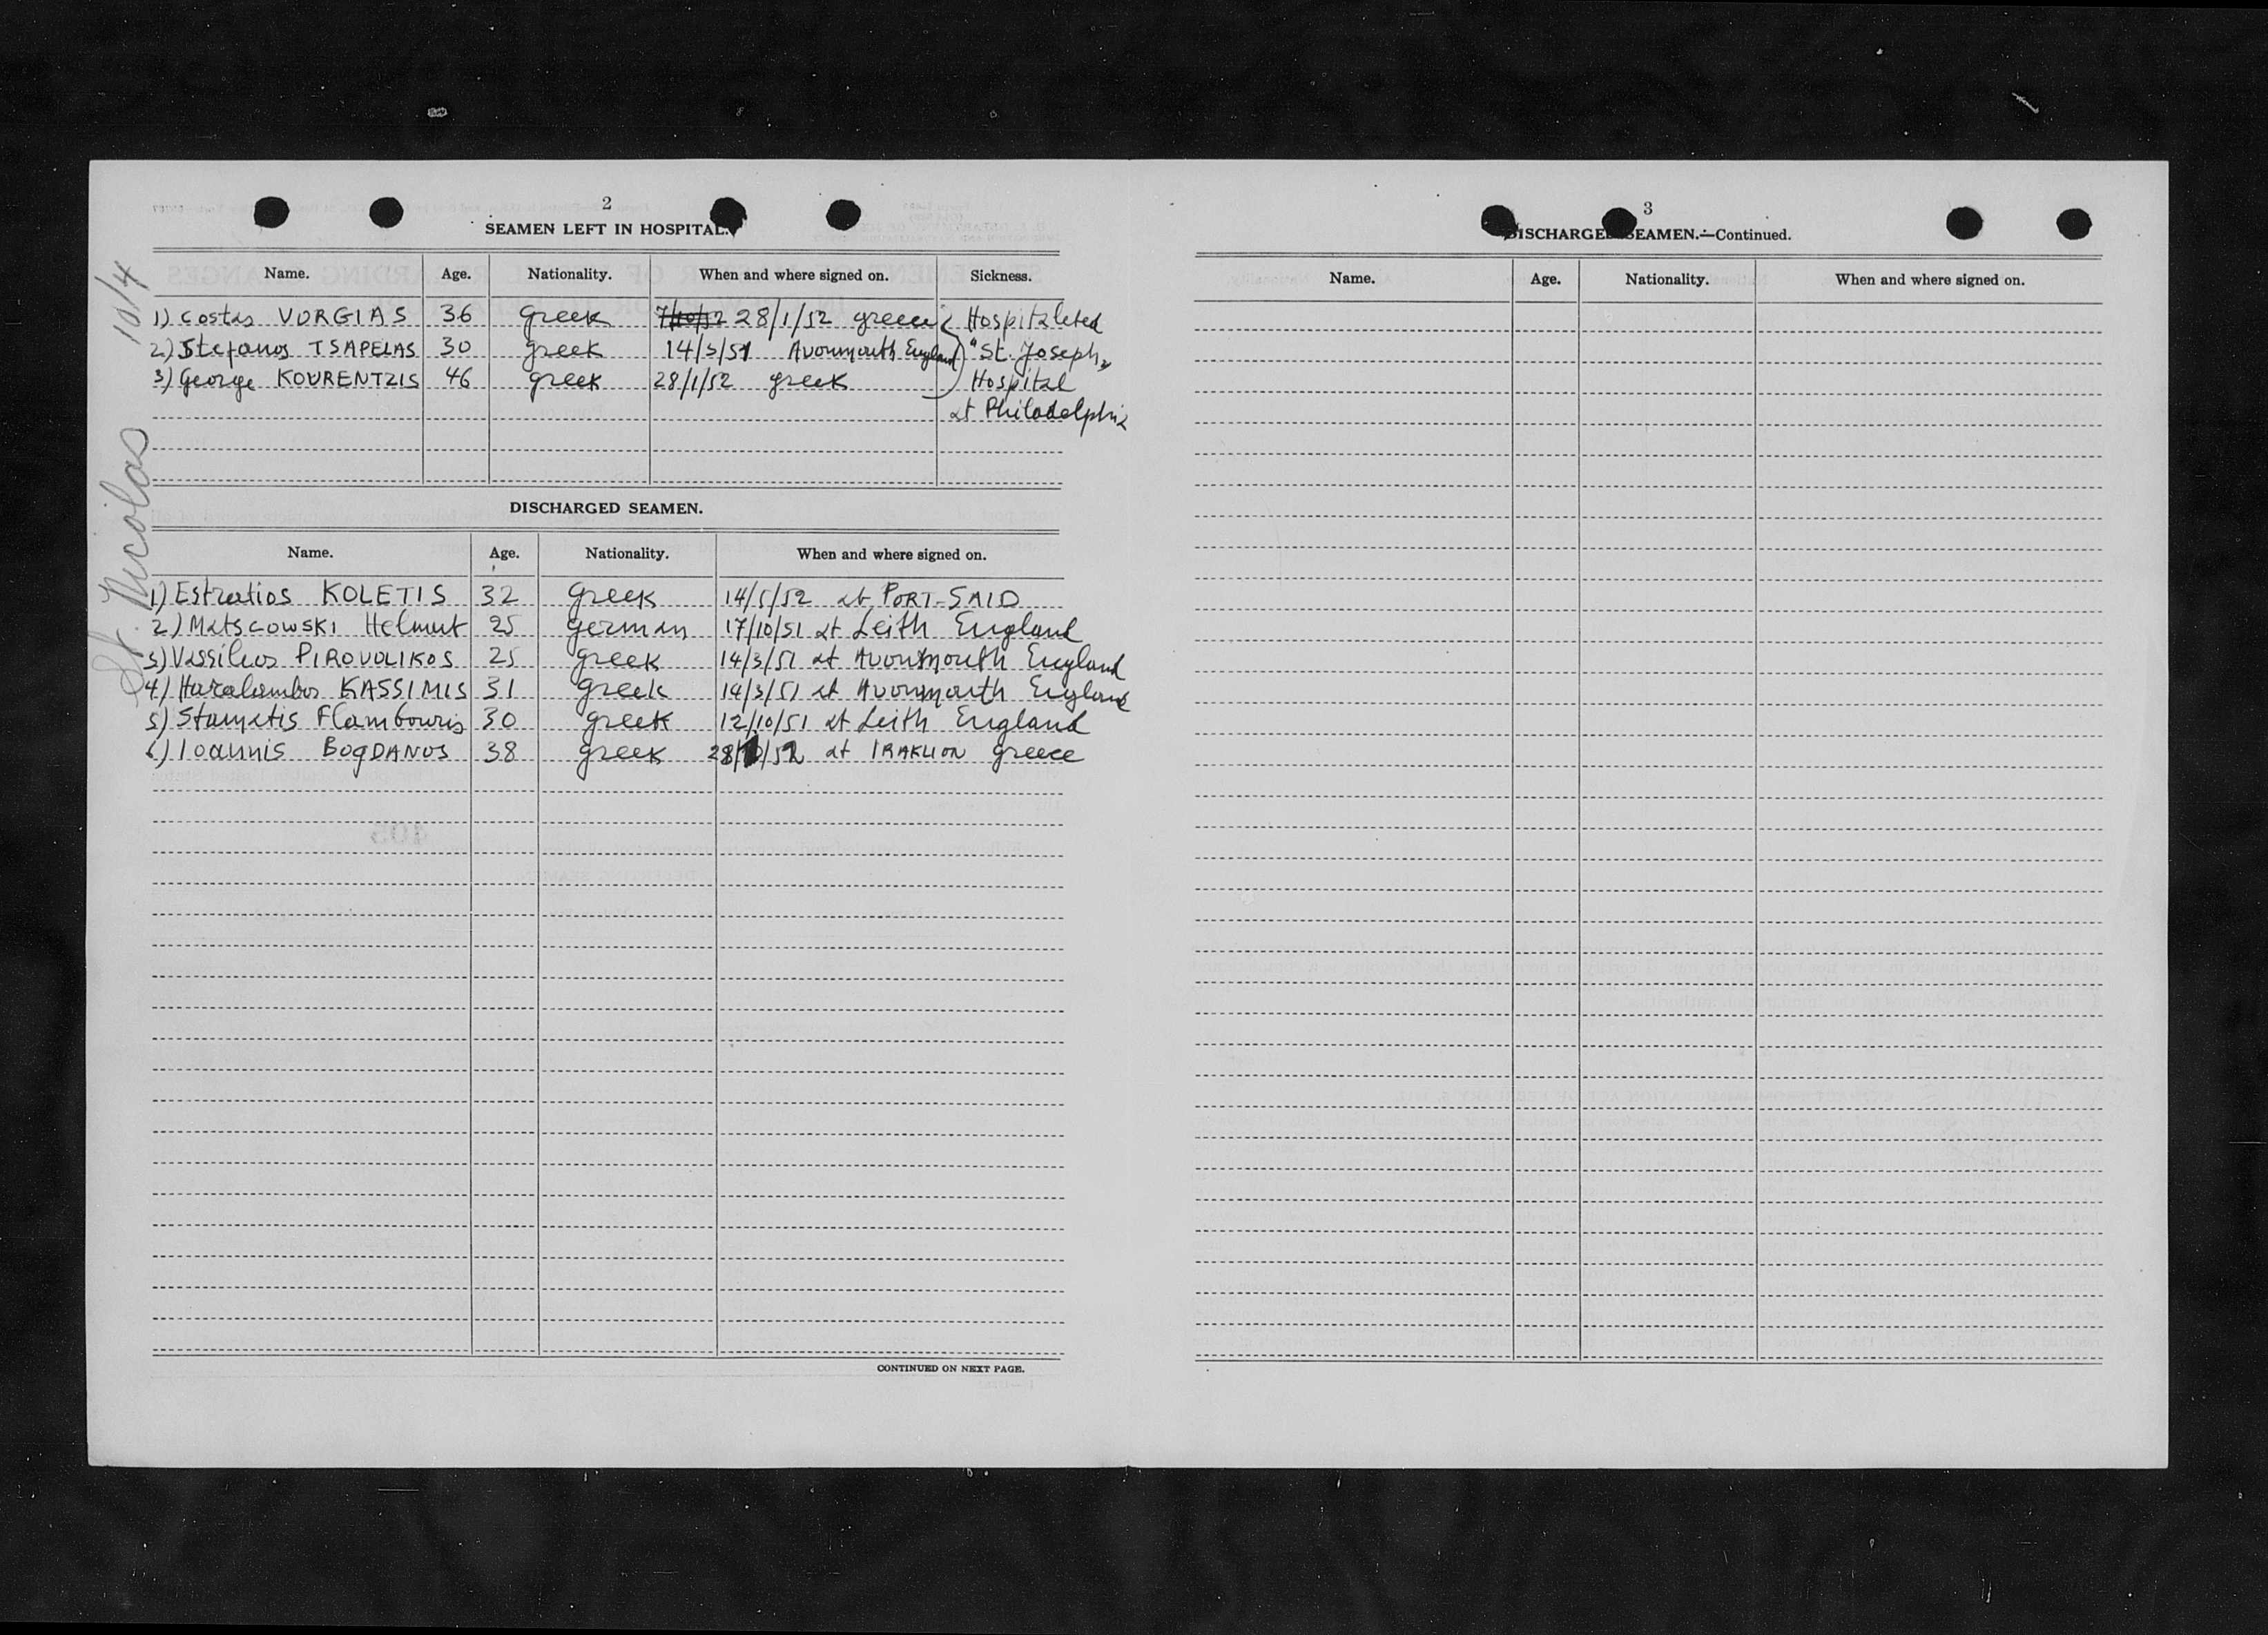 2
SEAMEN LEFT IN HOSPITAL.
Name. Age. Nationality. When and where signed on. Sickness.
1) Costas VORGIAS 36 Greek 28/1/52 greece Hospitaleted
2) Stefanos TSAPELAS 30 greek 14/3/51 Avonmouth England "St. Joseph"
3) George KOURENTZIS 46 greek 28/1/52 greek Hospital
at Philadelphia
DISCHARGED SEAMEN.
Name. Age. Nationality. When and where signed on.
1) Estratios KOLETIS 32 Greek 14/5/52 at PORT-SAID
2) Matscowski Helmut 25 german 17/10/51 at Leith England
3) Vassilios PIROVOLIKOS 25 greek 14/3/51 at Avonmouth England
4) Haralambos KASSIMIS 31 greek 14/3/51 at Avonmouth England
5) Stamatis Flambouris 30 greek 12/10/51 at Leith England
6) Ioannis BogDANOS 38 greek at IRAKLION greece
CONTINUED ON NEXT PAGE.
St. Nicolas 10/4
3
DISCHARGED SEAMEN.—Continued.
Name. Age. Nationality. When and where signed on.